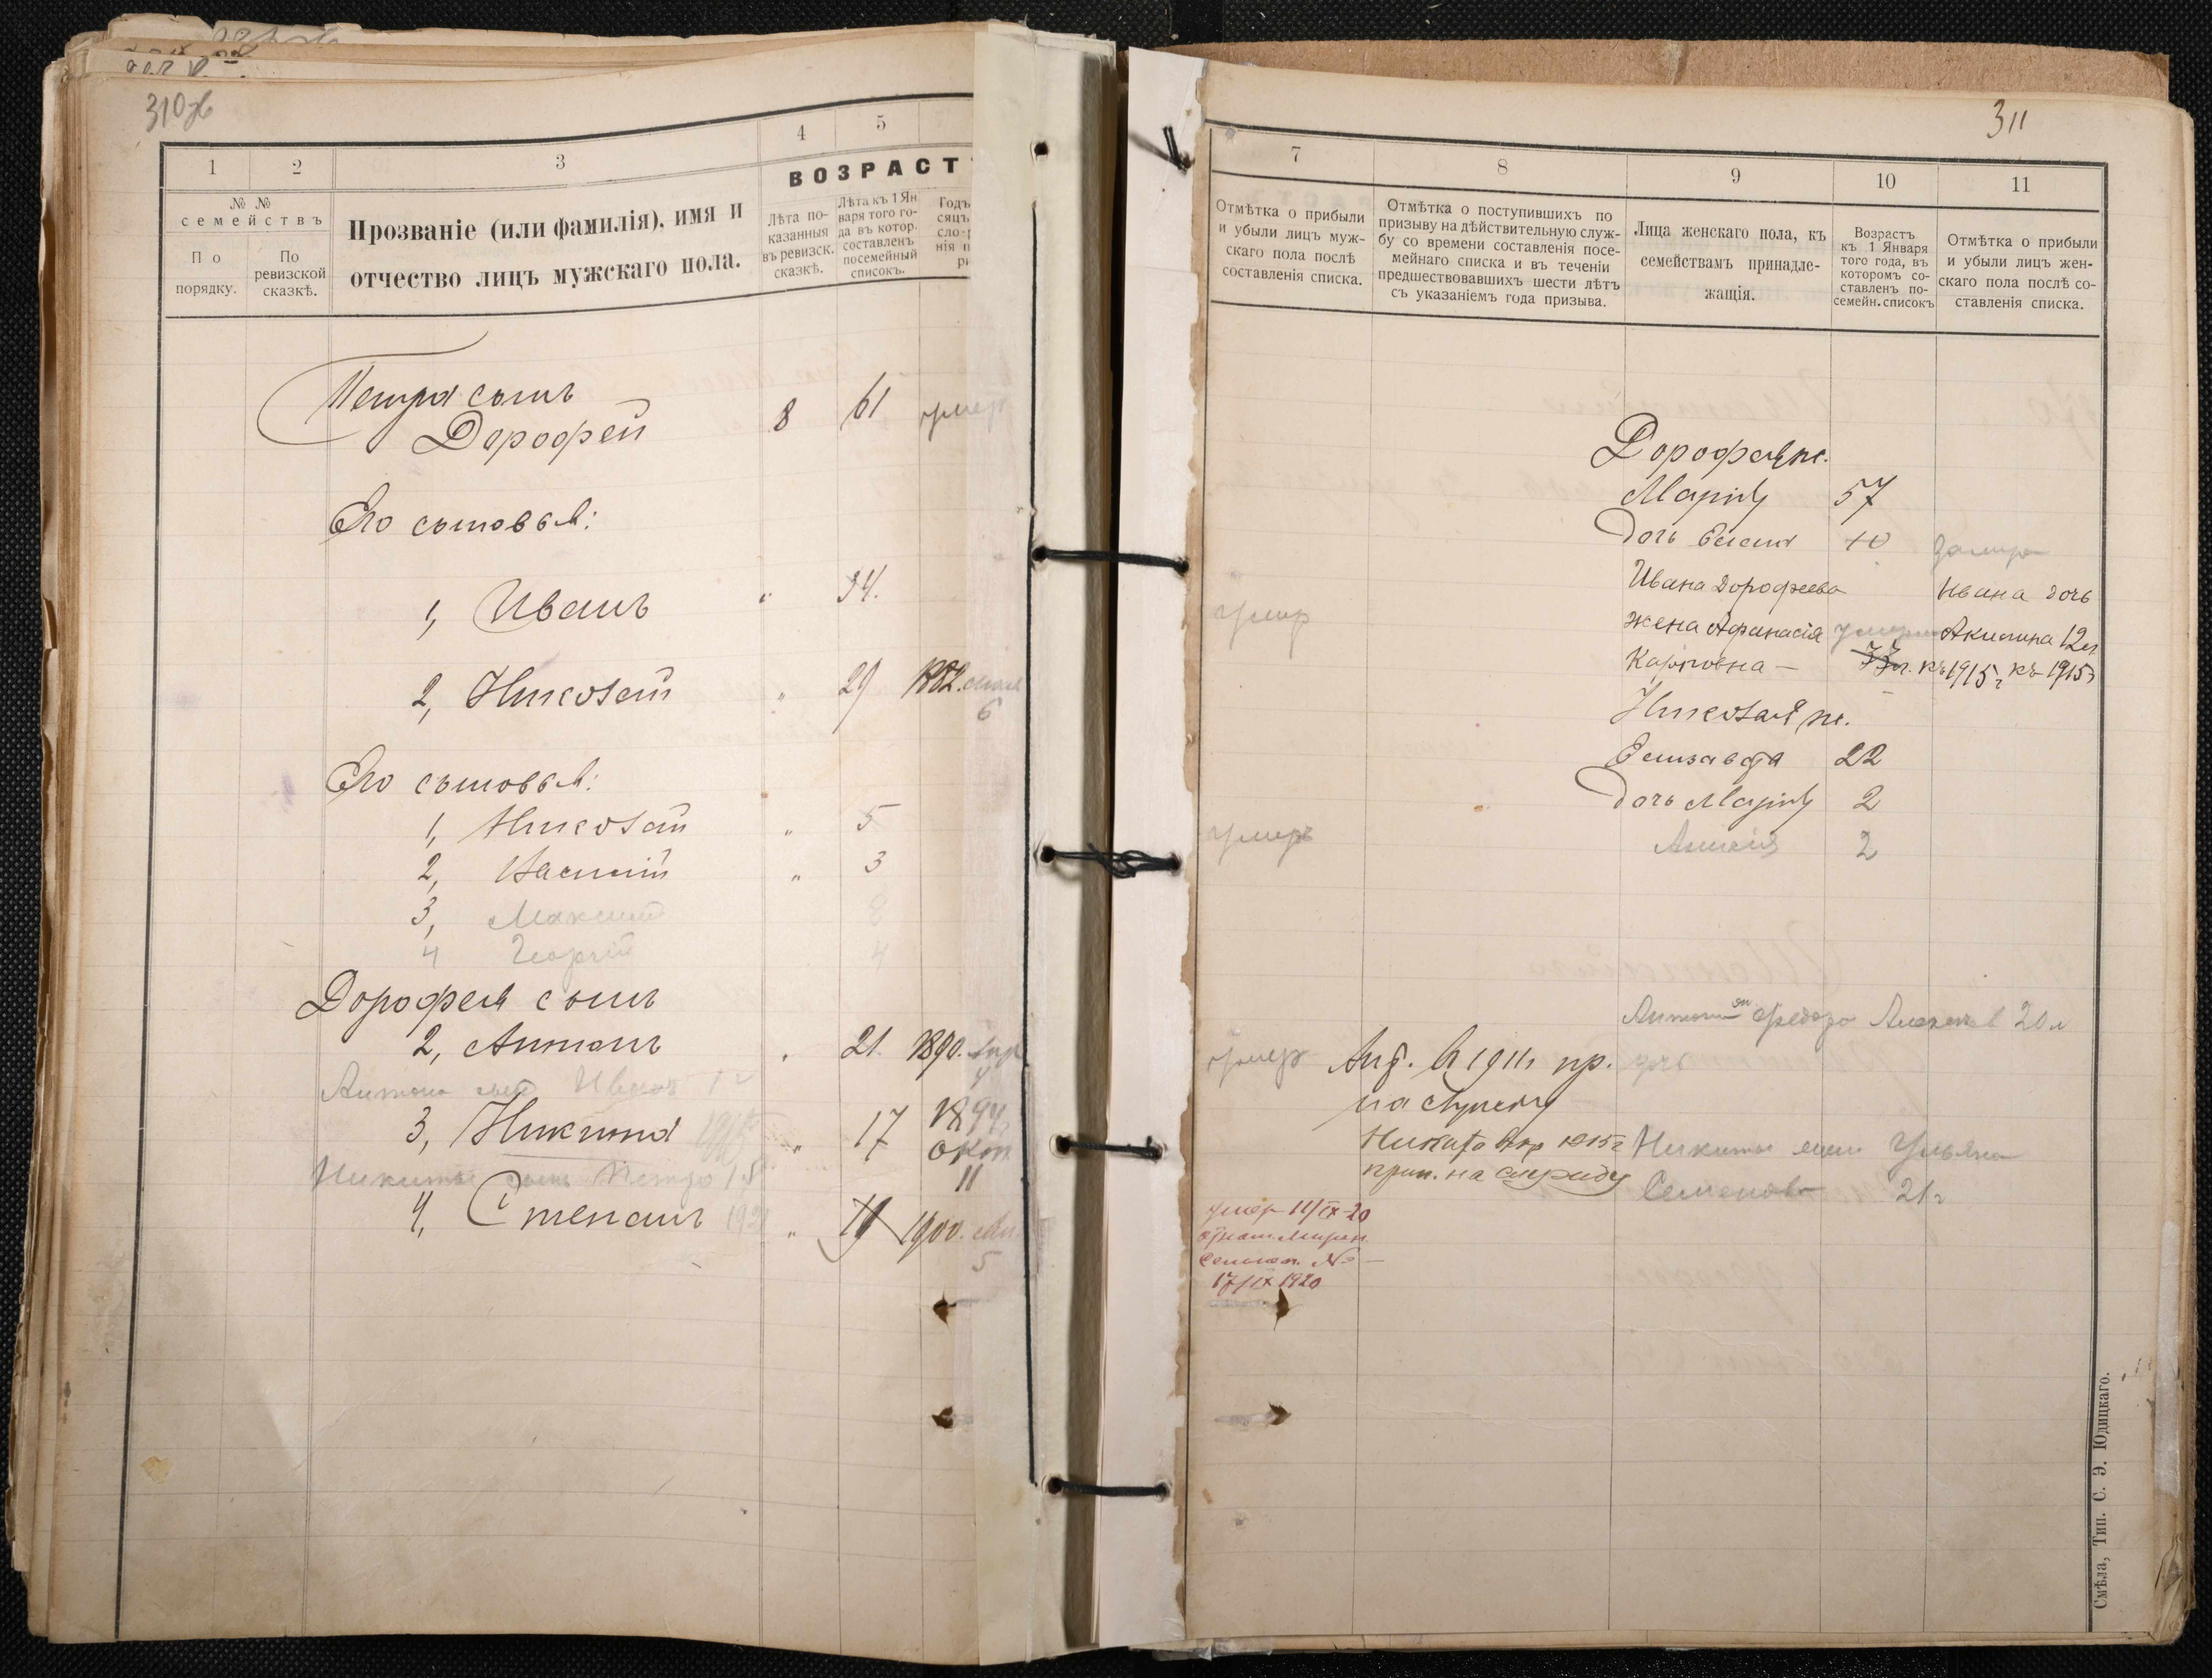 310
1
2
3
4
5
№ №
семействъ
По
порядку.
По
ревизской
сказкѣ.
Прозваніе (или фамилія), имя и
отчество лицъ мужскаго пола.
ВОЗРАСТ
Лѣта по-
казанныя
въ ревизск.
сказкѣ.
Лѣта къ 1 Ян
варя того го-
да въ котор.
составленъ
посемейный
списокъ.
Годъ
сяцъ
сло-
нія п
Петра сынъ
Дорофей 8 61 умеръ
Его сыновья:
1, Иванъ " 34.
2, Николай " 29 1882.
6
Его сыновья:
1, Николай " 5
2, Василій " 3
3, Максим 8
4 Георгій 4
Дорофея сынъ
2, Антонъ 21 1890. Апр
4
Антона сынъ Иван
3, Никита " 17 1894
окт.
11
Никиты сынъ Петро
4, Степанъ " 1900.
5
311
7
8
9
10
11
Отмѣтка о прибыли
и убыли лицъ муж-
скаго пола послѣ
составленія списка.
Отмѣтка о поступившихъ по
призыву на дѣйствительную служ-
бу со времени составленія посе-
мейнаго списка и въ теченіи
предшествовавшихъ шести лѣтъ
съ указаніемъ года призыва.
Лица женскаго пола, къ
семействамъ принадле-
жащія.
Возрастъ
къ 1 Января
того года, въ
которомъ со-
ставленъ по-
семейн. списокъ
Отмѣтка о прибыли
и убыли лицъ жен-
скаго пола послѣ со-
ставленія списка.
Дорофея ж.
Марія 57
дочь Елена 10 замуж
Ивана Дорофеева Ивана дочь
умер жена Афанасія умерла Акилина 12 л
Карповна — къ 1915 г къ 1915 г
Николая ж.
Елизавета 22
дочь Марія 2
умеръ 2
20 л
умеръ Ант. въ 1911 г пр.
на службу
Никита 1915 г Никиты жена Ульяна
прин. на службу Семенова 21 г
умер 11/IX-20
№ —
17/IX 1920
Смѣла, Тип. С. Э. Юдицкаго.